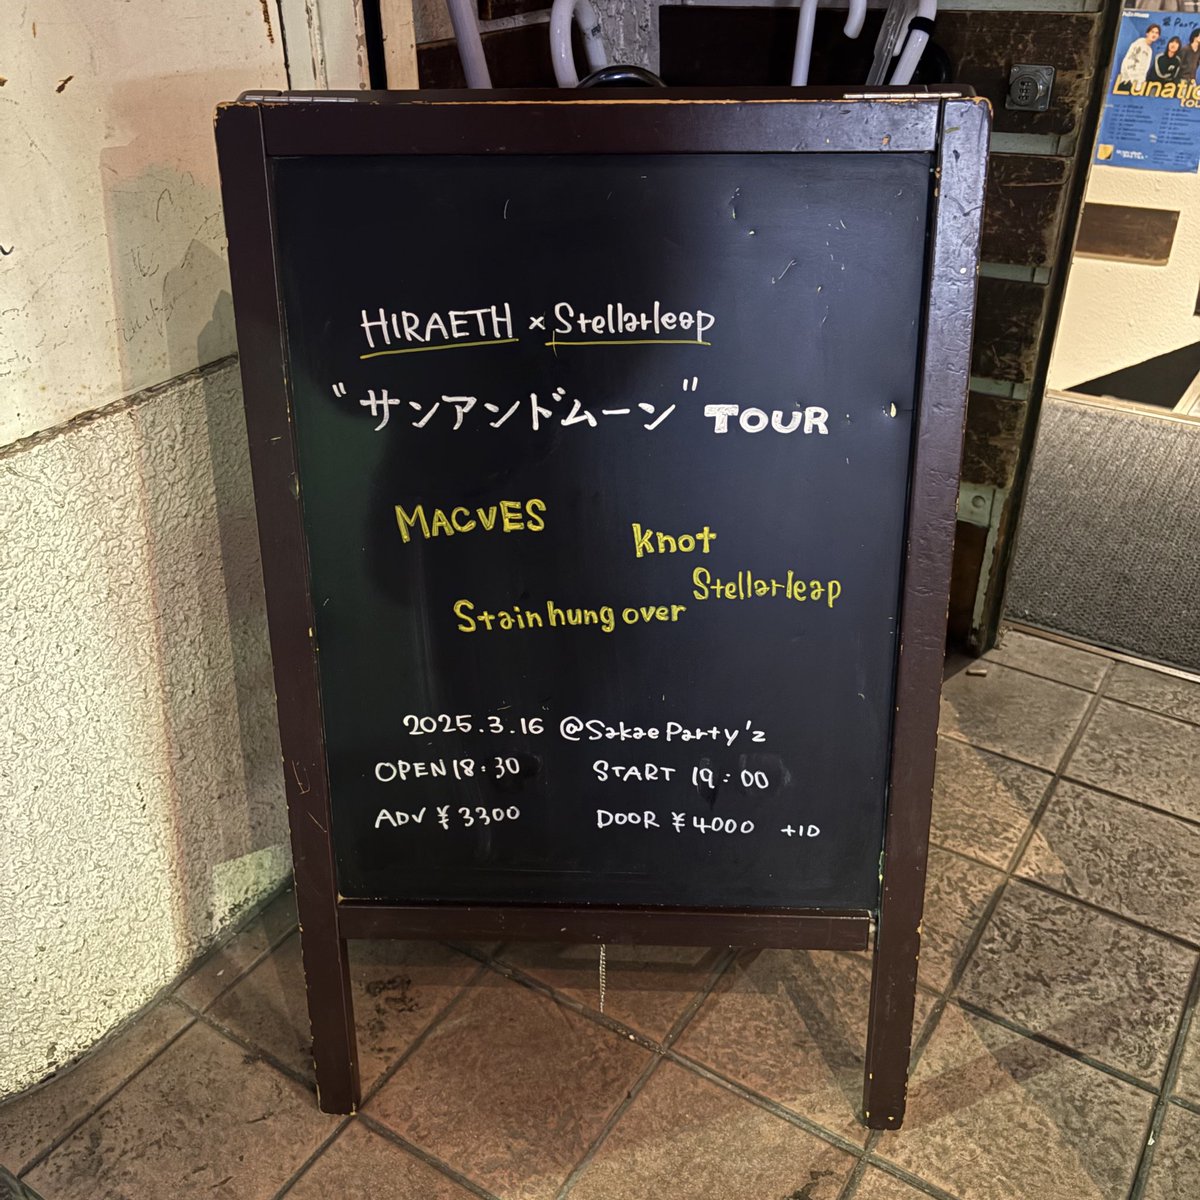 HIRAETH × Stellarleap
"サンアンドムーン" TOUR
MACVES
knot
Stellarleap
Stain hung over
2025.3.16 @Sakae Party'z
OPEN 18:30 START 19:00
ADV ¥3300 DOOR ¥4000 +1D
Lunatic